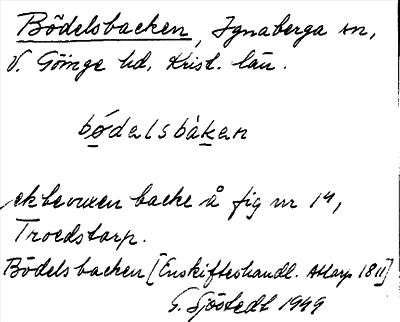 Bödelsbacken, Ignaberga sn,
V. Göinge hd, Krist. län.
bødalsbàkan
ekbevuxen backe å fig nr 14,
Troedstorp.
Bödelsbacken [Enskifteshandl. Attarp 1811]
G. Sjöstedt 1949